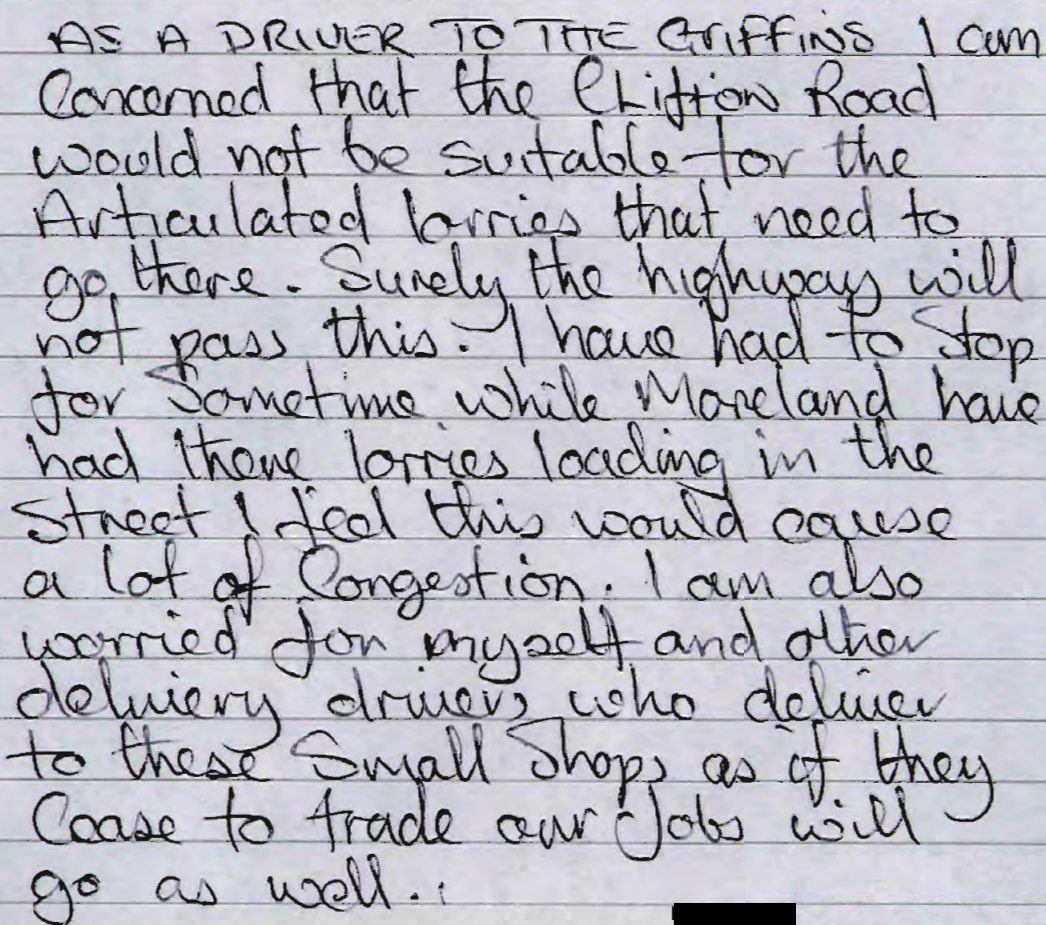 AS A DRIVER TO THE GRIFFINS I am
Concerned that the Clifton Road
would not be suitable for the
Articulated lorries that need to
go there. Surely the highway will
not pass this. I have had to Stop
for Sometime while Moreland have
had there lorries loading in the
Street I feel this would cause
a lot of Congestion. I am also
worried for myself and other
delivery drivers who deliver
to these Small Shops as if they
Cease to trade our Jobs will
go as well.